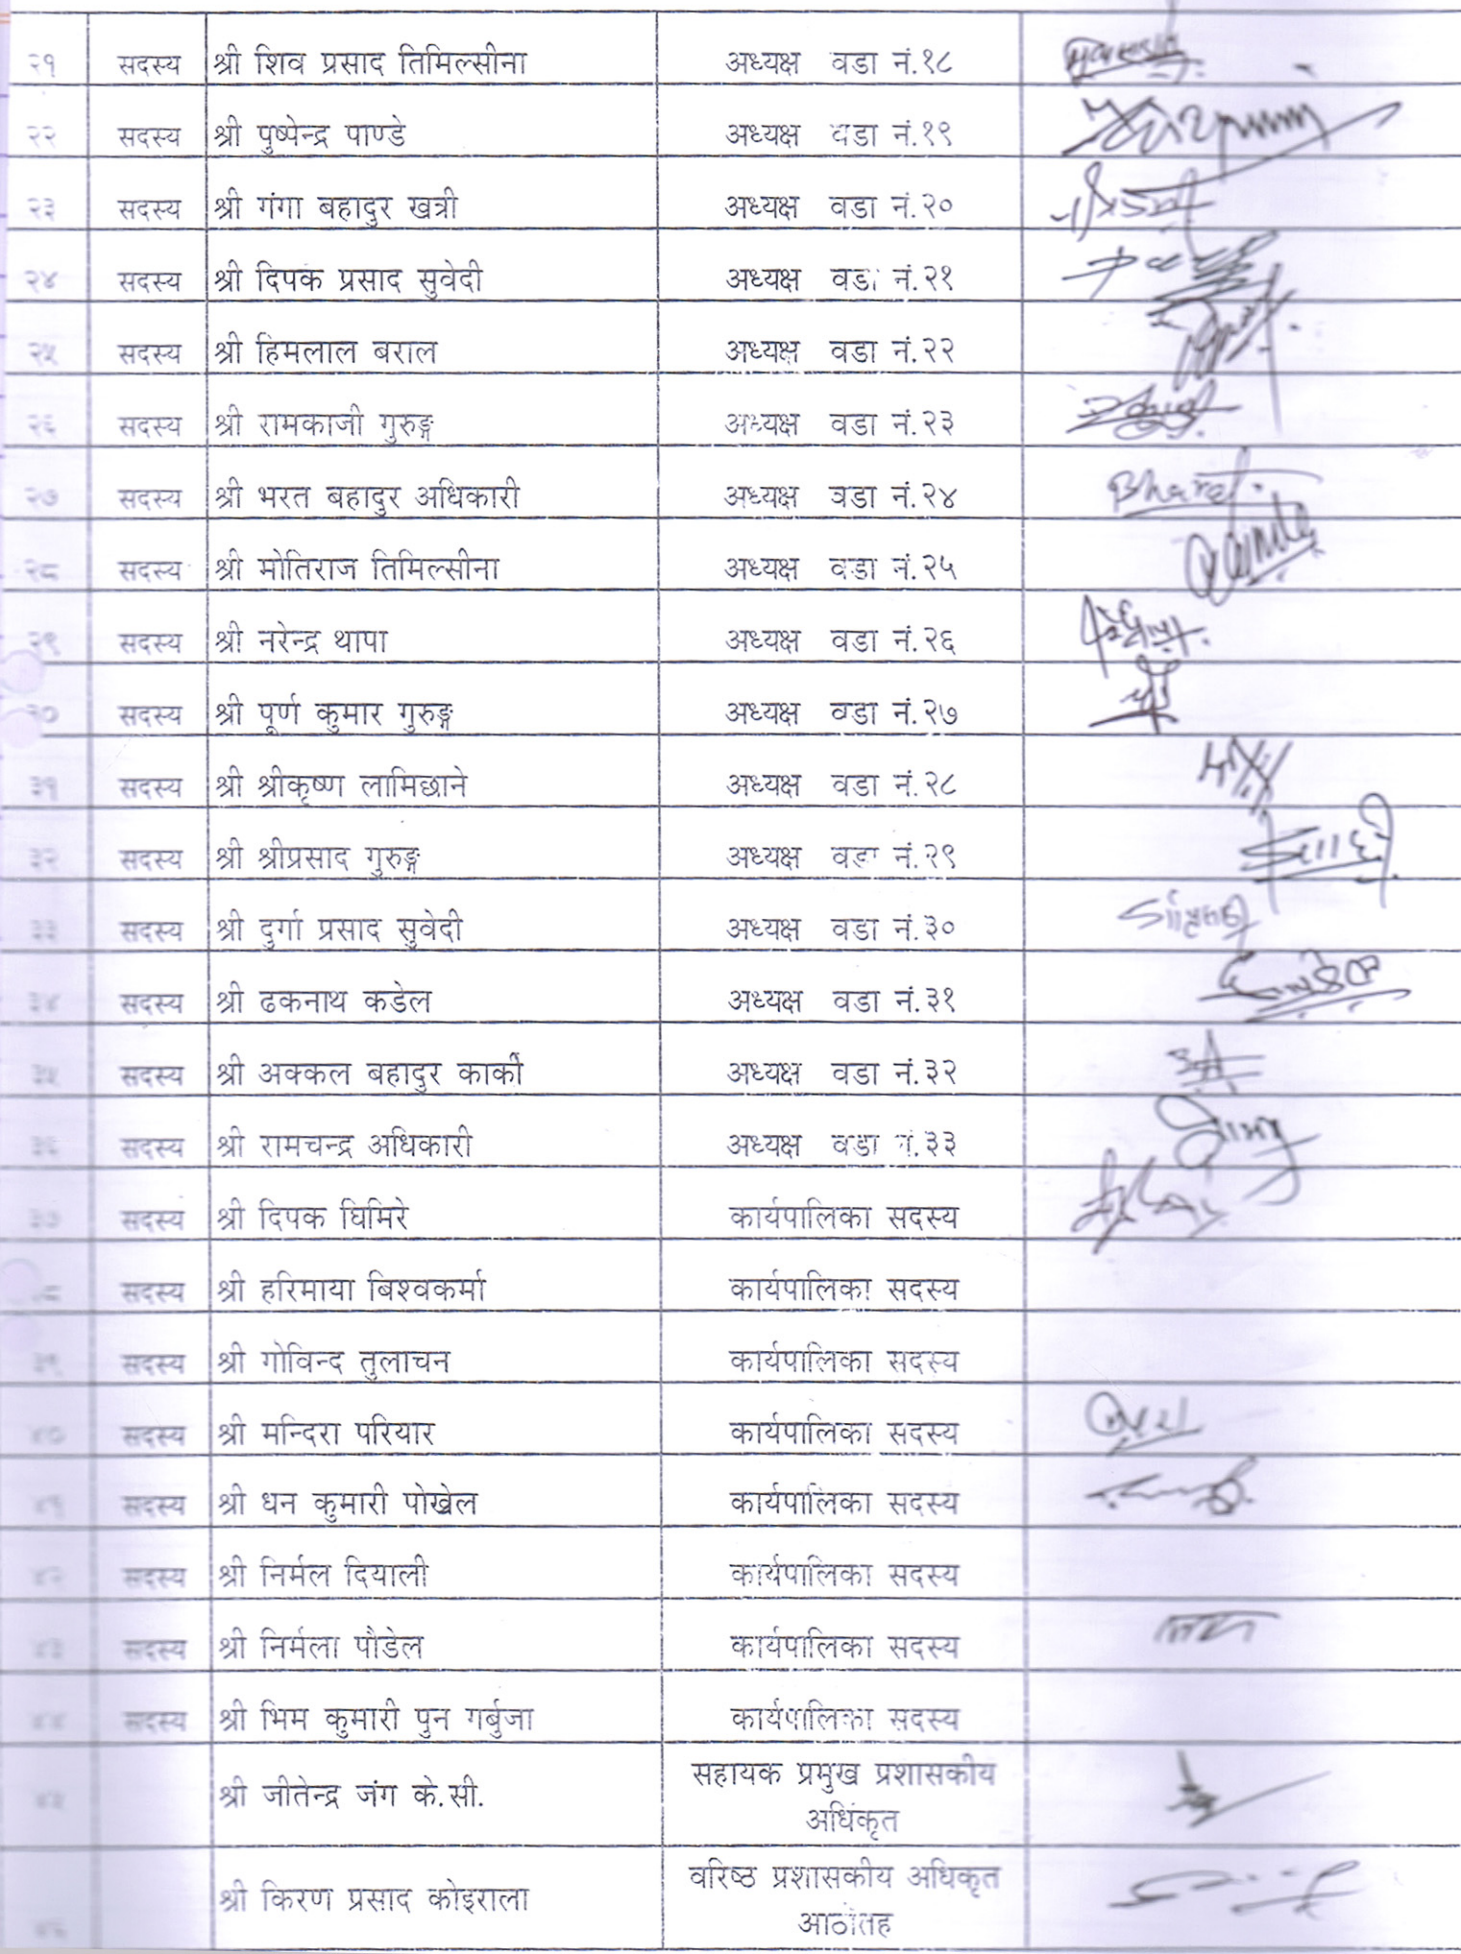 २१ सदस्य श्री शिव प्रसाद तिमिल्सीना अध्यक्ष वडा नं.१८
२२ सदस्य श्री पुष्पेन्द्र पाण्डे अध्यक्ष वडा नं.१९
२३ सदस्य श्री गंगा बहादुर खत्री अध्यक्ष वडा नं.२०
२४ सदस्य श्री दिपक प्रसाद सुवेदी अध्यक्ष वडा नं.२१
२५ सदस्य श्री हिमलाल बराल अध्यक्ष वडा नं.२२
२६ सदस्य श्री रामकाजी गुरुङ्ग अध्यक्ष वडा नं.२३
२७ सदस्य श्री भरत बहादुर अधिकारी अध्यक्ष वडा नं.२४ Bharat
२८ सदस्य श्री मोतिराज तिमिल्सीना अध्यक्ष वडा नं.२५
२९ सदस्य श्री नरेन्द्र थापा अध्यक्ष वडा नं.२६
सदस्य श्री पूर्ण कुमार गुरुङ्ग अध्यक्ष वडा नं.२७
३१ सदस्य श्री श्रीकृष्ण लामिछाने अध्यक्ष वडा नं.२८
३२ सदस्य श्री श्रीप्रसाद गुरुङ्ग अध्यक्ष वडा नं.२९
३३ सदस्य श्री दुर्गा प्रसाद सुवेदी अध्यक्ष वडा नं.३०
३४ सदस्य श्री ढकनाथ कडेल अध्यक्ष वडा नं.३१
३५ सदस्य श्री अक्कल बहादुर कार्की अध्यक्ष वडा नं.३२
३६ सदस्य श्री रामचन्द्र अधिकारी अध्यक्ष वडा नं.३३
३७ सदस्य श्री दिपक घिमिरे कार्यपालिका सदस्य
सदस्य श्री हरिमाया बिश्वकर्मा कार्यपालिका सदस्य
३९ सदस्य श्री गोविन्द तुलाचन कार्यपालिका सदस्य
४० सदस्य श्री मन्दिरा परियार कार्यपालिका सदस्य
४१ सदस्य श्री धन कुमारी पोखेल कार्यपालिका सदस्य
४२ सदस्य श्री निर्मल दियाली कार्यपालिका सदस्य
४३ सदस्य श्री निर्मला पौडेल कार्यपालिका सदस्य
४४ सदस्य श्री भिम कुमारी पुन गर्बुजा कार्यपालिका सदस्य
४५ श्री जीतेन्द्र जंग के.सी. सहायक प्रमुख प्रशासकीय
अधिकृत
४६ श्री किरण प्रसाद कोइराला वरिष्ठ प्रशासकीय अधिकृत
आठौंतह